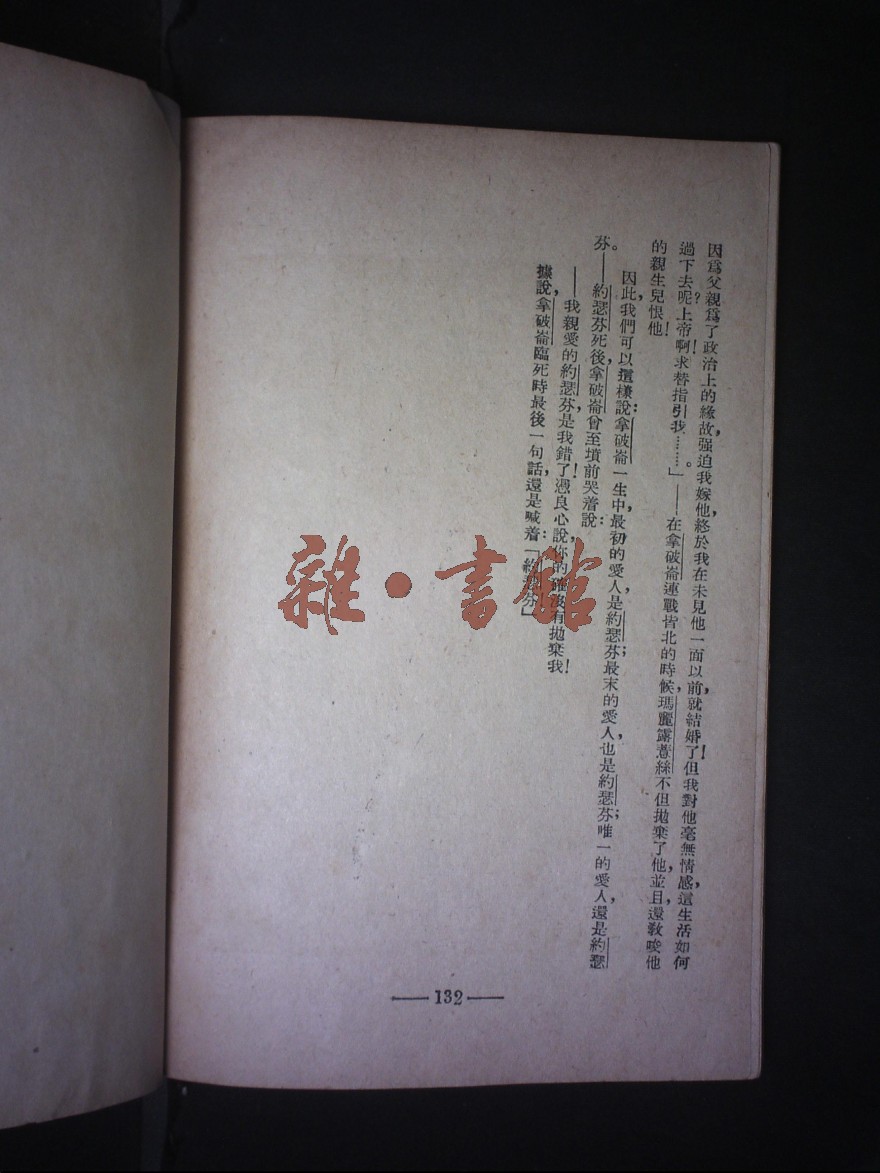 因爲父親爲了政治上的緣故，强迫我嫁他，終於我在未見他一面以前，就結婚了！但我對他毫無情感，這生活如何
過下去呢？上帝啊！求替指引我………。」——在拿破崙連戰皆北的時候，瑪麗露薏絲不但拋棄了他，並且，還敎唆他
的親生兒恨他！
因此，我們可以這樣說：拿破崙一生中，最初的愛人是約瑟芬；最末的愛人，也是約瑟芬；唯一的愛人，還是約瑟
芬。——約瑟芬死後，拿破崙曾至墳前哭着說：
——我親愛的約瑟芬，是我錯了！憑良心說，你的確沒有拋棄我！
據說，拿破崙臨死時最後一句話，還是喊着：「約瑟芬」
雜·書館
132